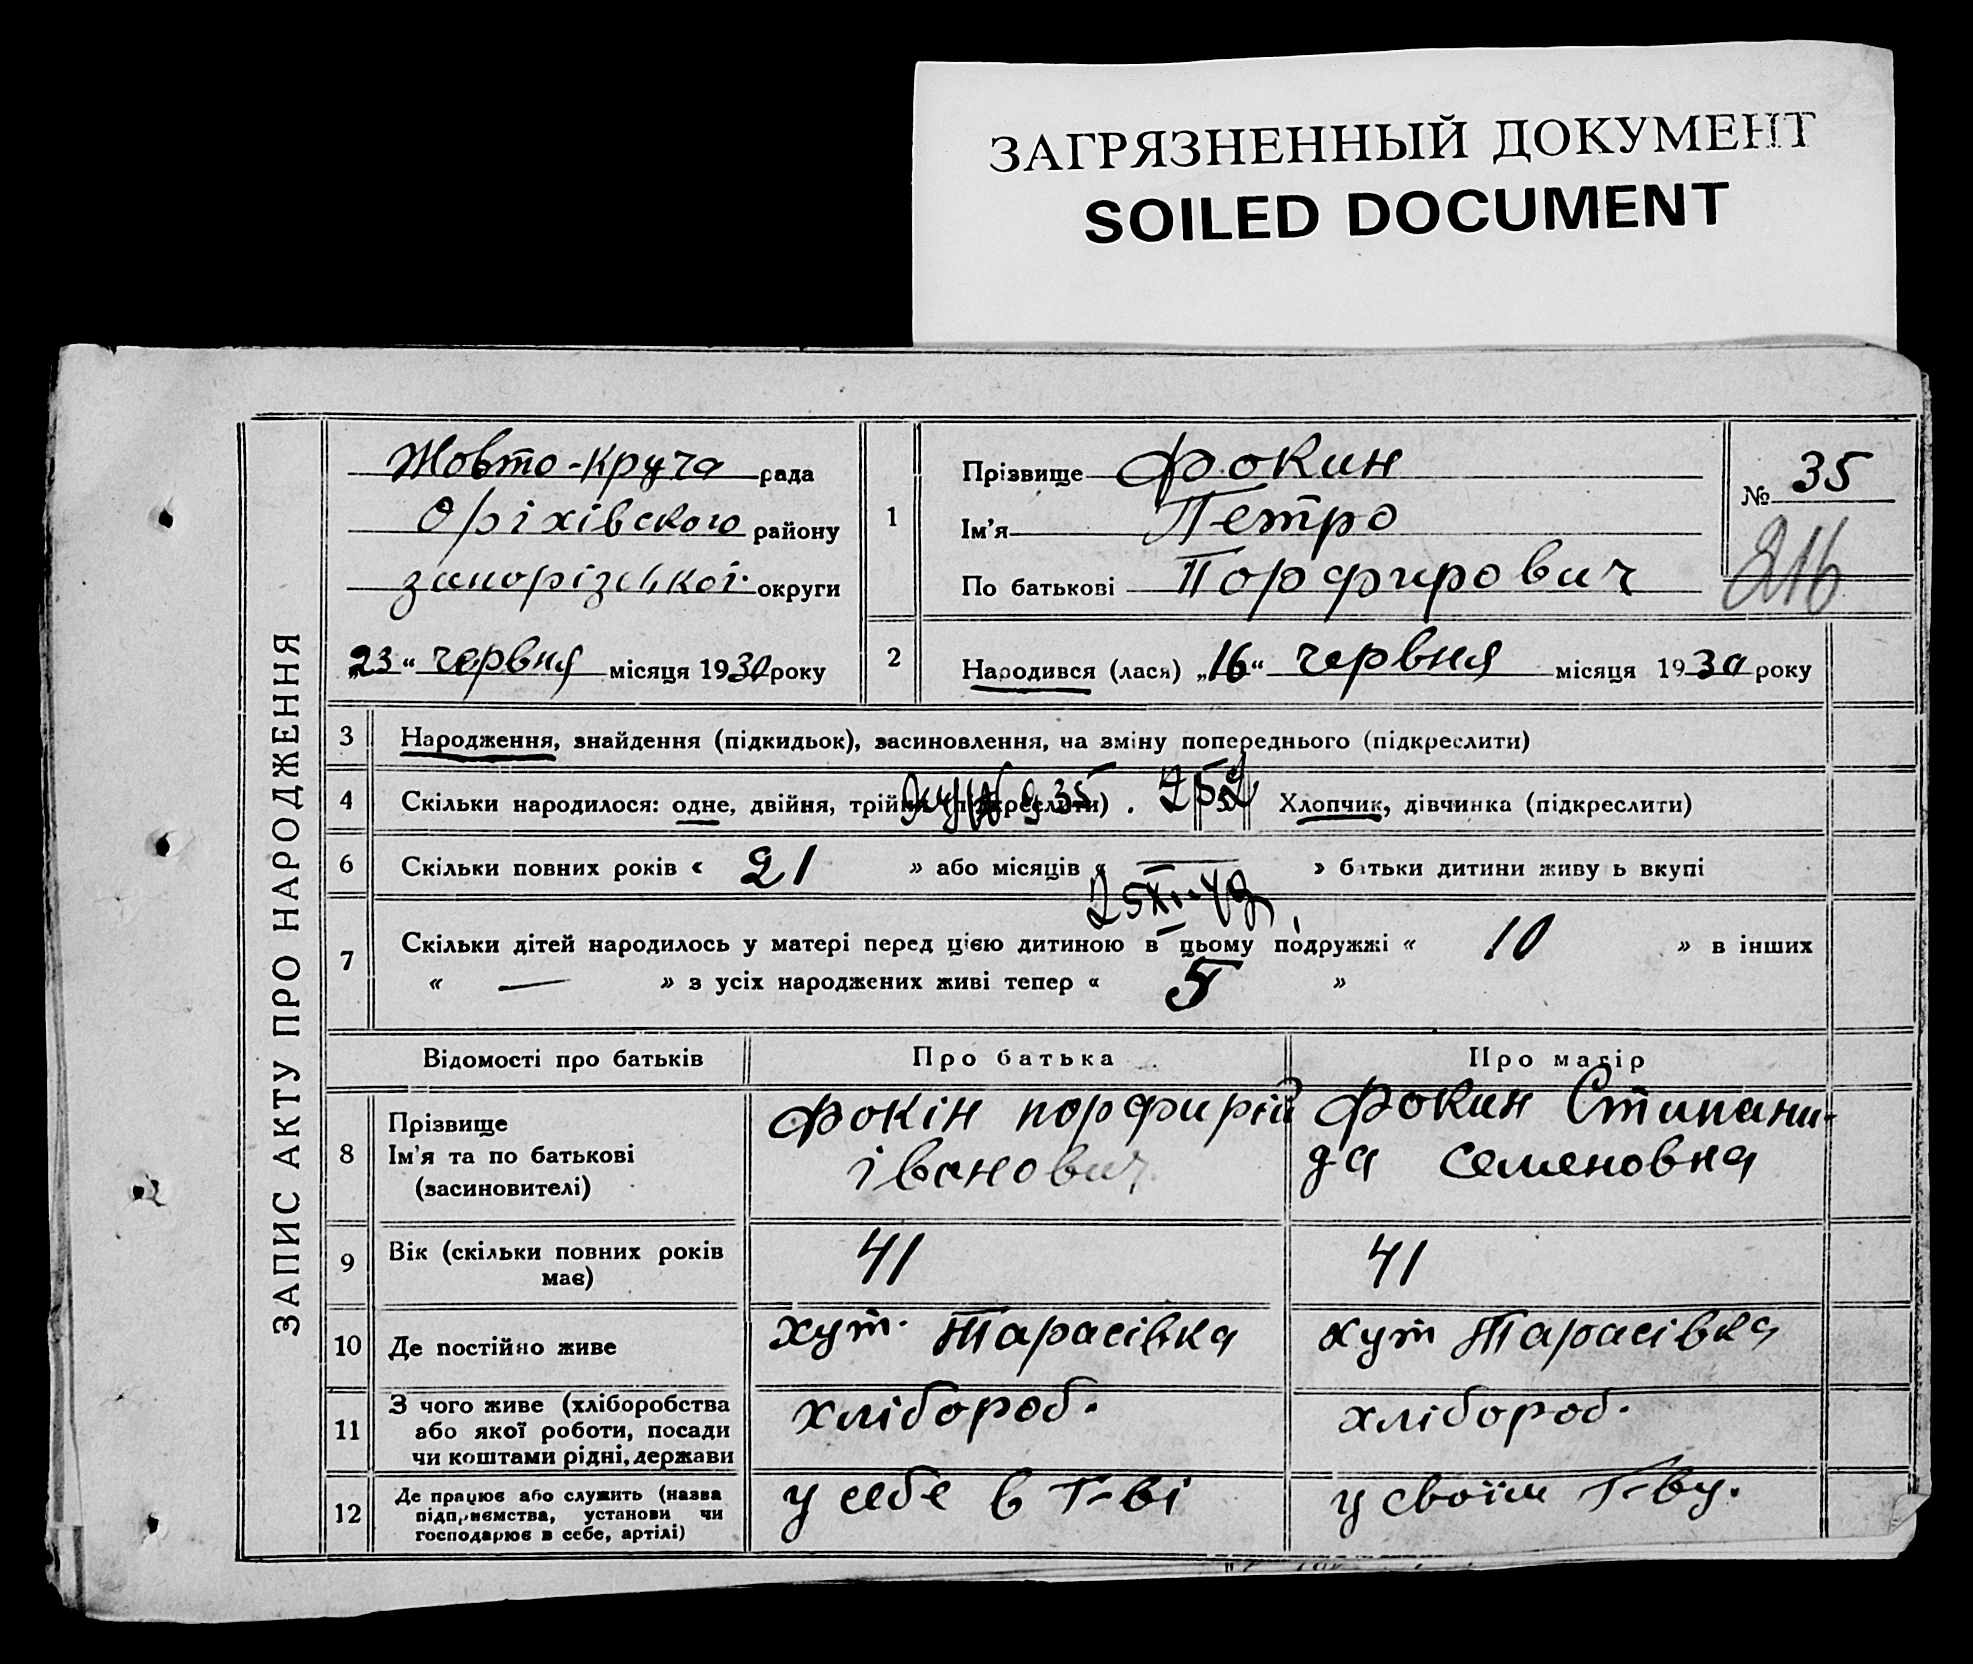 ЗАГРЯЗНЕННЫЙ ДОКУМЕНТ
SOILED DOCUMENT
ЗАПИС АКТУ ПРО НАРОДЖЕННЯ
Жовто-круча рада
Оріхівского району
запорізської округи
„23“ червня місяця 1930 року
1
Прізвище Фокин
Ім'я Петро
По батькові Порфирович
№ 35
216
2 Народився (лася) „16“ червня місяця 1930 року
3 Народження, знайдення (підкидьок), засиновлення, на зміну попереднього (підкреслити)
4 Скільки народилося: одне, двійня, трійня (підкреслити) . 5 Хлопчик, дівчинка (підкреслити)
6 Скільки повних років « 21 » або місяців « — » батьки дитини живуть вкупі
7 Скільки дітей народилось у матері перед цією дитиною в цьому подружжі « 10 » в інших
« — » з усіх народжених живі тепер « 5 »
Відомості про батьків Про батька Про матір
8 Прізвище
Ім'я та по батькові
(засиновителі)
Фокін порфирій
іванович
Фокин Стипани-
да семеновна
9 Вік (скільки повних років
має)
41 41
10 Де постійно живе хут. Тарасівка хут Тарасівка
11 З чого живе (хліборобства
або якої роботи, посади
чи коштами рідні, держави
хлібороб. хлібороб.
12 Де працює або служить (назва
підприємства, установи чи
господарює в себе, артілі)
у себе в г-ві у своїм г-ву.